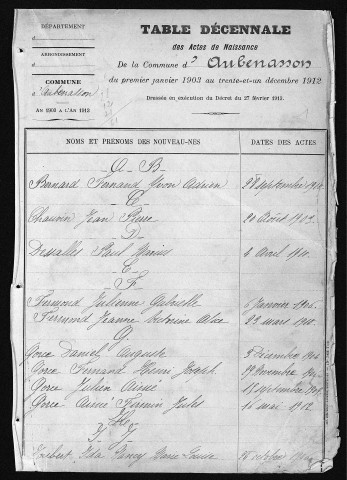 DÉPARTEMENT
d
ARRONDISSEMENT
d
COMMUNE
d'Aubenasson
AN 1903 A L'AN 1913
TABLE DÉCENNALE
des Actes de Naissance
De la Commune d'Aubenasson
du premier janvier 1903 au trente-et-un décembre 1912
Dressée en exécution du Décret du 27 février 1913.
NOMS ET PRÉNOMS DES NOUVEAU-NÉS DATES DES ACTES
A - B
Bernard Fernand Léon Adrien 28 septembre
C
Chauvin Jean Pierre 20 Août
D
Dessalles Paul Marius 6 Avril
E
F
Ferrand Julienne Gabrielle 6 Janvier
Ferrand Jeanne Victorine Alice 22 mars
G
Gorce Daniel Auguste Décembre
Gorce Fernand Henri Joseph 19 Novembre
Gorce Julien Aimé septembre
Gorce Aimé Firmin Jules 16 mai 1912
H
I J
Imbert Ida Fanny Marie Louise octobre